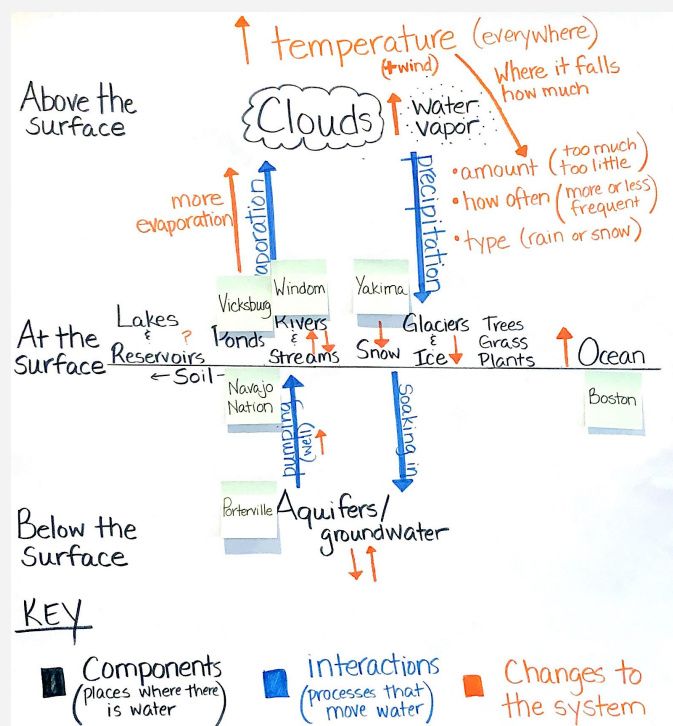 ↑ temperature (everywhere)
(+wind)
Where it falls
how much
Above the
surface
Clouds
↑ water
vapor
• amount (too much
too little)
• how often (more or less
frequent)
• type (rain or snow)
more
evaporation
aporation
precipitation
Vicksburg
Windom
Yakima
At the
Surface
Lakes
&
Reservoirs
?
Ponds
Rivers
&
Streams
Snow
Glaciers
&
Ice
Trees
Grass
Plants
Ocean
← Soil -
Navajo
Nation
Boston
pumping
(well)
Soaking in
Porterville
Aquifers/
groundwater
Below the
Surface
KEY
Components
(places where there
is water)
interactions
(processes that
move water)
Changes to
the system